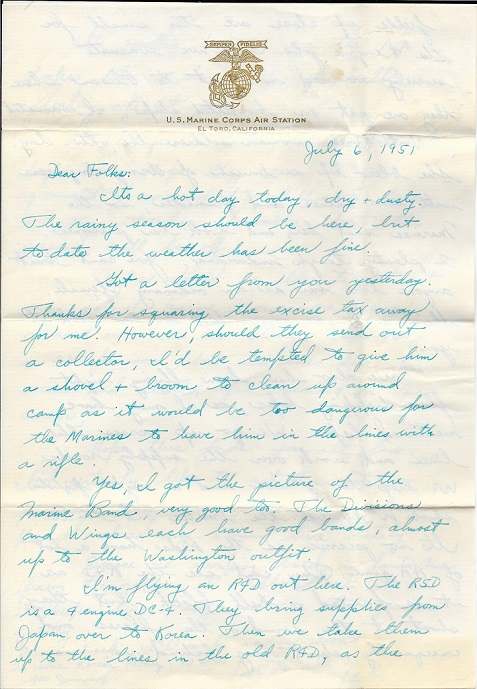 SEMPER FIDELIS
U.S. MARINE CORPS AIR STATION
EL TORO, CALIFORNIA
July 6, 1951
Dear Folks:
Its a hot day today, dry + dusty.
The rainy season should be here, but
to date the weather has been fine.
Got a letter from you yesterday.
Thanks for squaring the excise tax away
for me. However, should they send out
a collector, I'd be tempted to give him
a shovel + broom to clean up around
camp as it would be too dangerous for
the Marines to have him in the lines with
a rifle.
Yes, I got the picture of the
Marine Band, very good too. The Divisions
and Wings each have good bands, almost
up to the Washington outfit.
I'm flying an R4D out here. The R5D
is a 4 engine DC-4. They bring supplies from
Japan over to Korea. Then we take them
up to the lines in the old R4D, as the